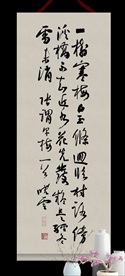 一樹寒梅白玉條迥臨村路傍
溪橋不知近水花先發疑是經冬
雪未消 張謂早梅一首